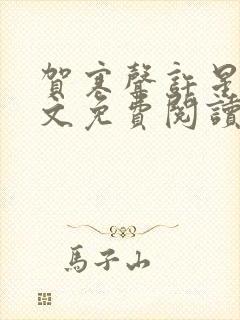 賀寒聲許星
文免費閱讀
馬子山